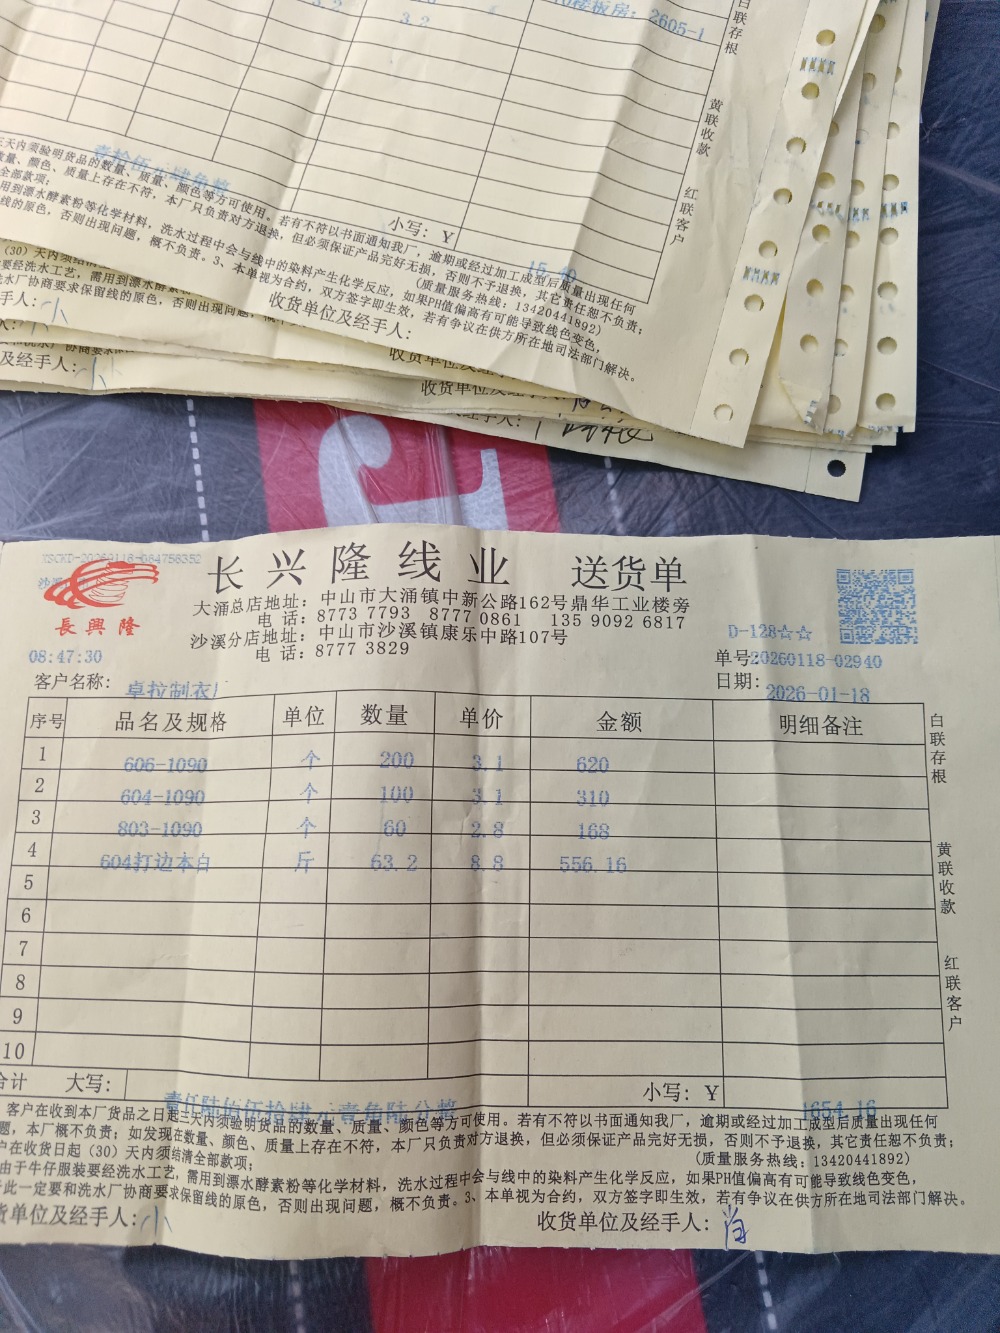 3.2
3.2
10楼板房：2605-1
白联存根
黄联收款
红联客户
壹拾伍元肆角整
小写：Y
15.40
三天内须验明货品的数量、质量、颜色等方可使用。若有不符以书面通知我厂，逾期或经过加工成型后质量出现任何
数量、颜色、质量上存在不符，本厂只负责对方退换，但必须保证产品完好无损，否则不予退换，其它责任恕不负责；
全部款项；
(质量服务热线：13420441892)
用到漂水酵素粉等化学材料，洗水过程中会与线中的染料产生化学反应，如果PH值偏高有可能导致线色变色，
线的原色，否则出现问题，概不负责。3、本单视为合约，双方签字即生效，若有争议在供方所在地司法部门解决。
收货单位及经手人：
手人：小
收货单位及经手
及经手人：小
收货单位及经
YSCKD-20260118-084758352
长兴隆线业 送货单
長興隆
大涌总店地址：中山市大涌镇中新公路162号鼎华工业楼旁
电 话：8773 7793 8777 0861 135 9092 6817
沙溪分店地址：中山市沙溪镇康乐中路107号
电 话：8777 3829
D-128☆☆
08:47:30
单号：20260118-02940
客户名称：卓拉制衣厂
日期：2026-01-18
序号 品名及规格 单位 数量 单价 金额 明细备注
1 606-1090 个 200 3.1 620
2 604-1090 个 100 3.1 310
3 803-1090 个 60 2.8 168
4 604打边本白 斤 63.2 8.8 556.16
5
6
7
8
9
10
合计 大写：壹仟陆佰伍拾肆元壹角陆分整 小写：Y 1654.16
白联存根
黄联收款
红联客户
客户在收到本厂货品之日起三天内须验明货品的数量、质量、颜色等方可使用。若有不符以书面通知我厂，逾期或经过加工成型后质量出现任何
题，本厂概不负责；如发现在数量、颜色、质量上存在不符，本厂只负责对方退换，但必须保证产品完好无损，否则不予退换，其它责任恕不负责；
户在收货日起（30）天内须结清全部款项；
(质量服务热线：13420441892)
由于牛仔服装要经洗水工艺，需用到漂水酵素粉等化学材料，洗水过程中会与线中的染料产生化学反应，如果PH值偏高有可能导致线色变色，
此一定要和洗水厂协商要求保留线的原色，否则出现问题，概不负责。3、本单视为合约，双方签字即生效，若有争议在供方所在地司法部门解决。
货单位及经手人：小
收货单位及经手人：